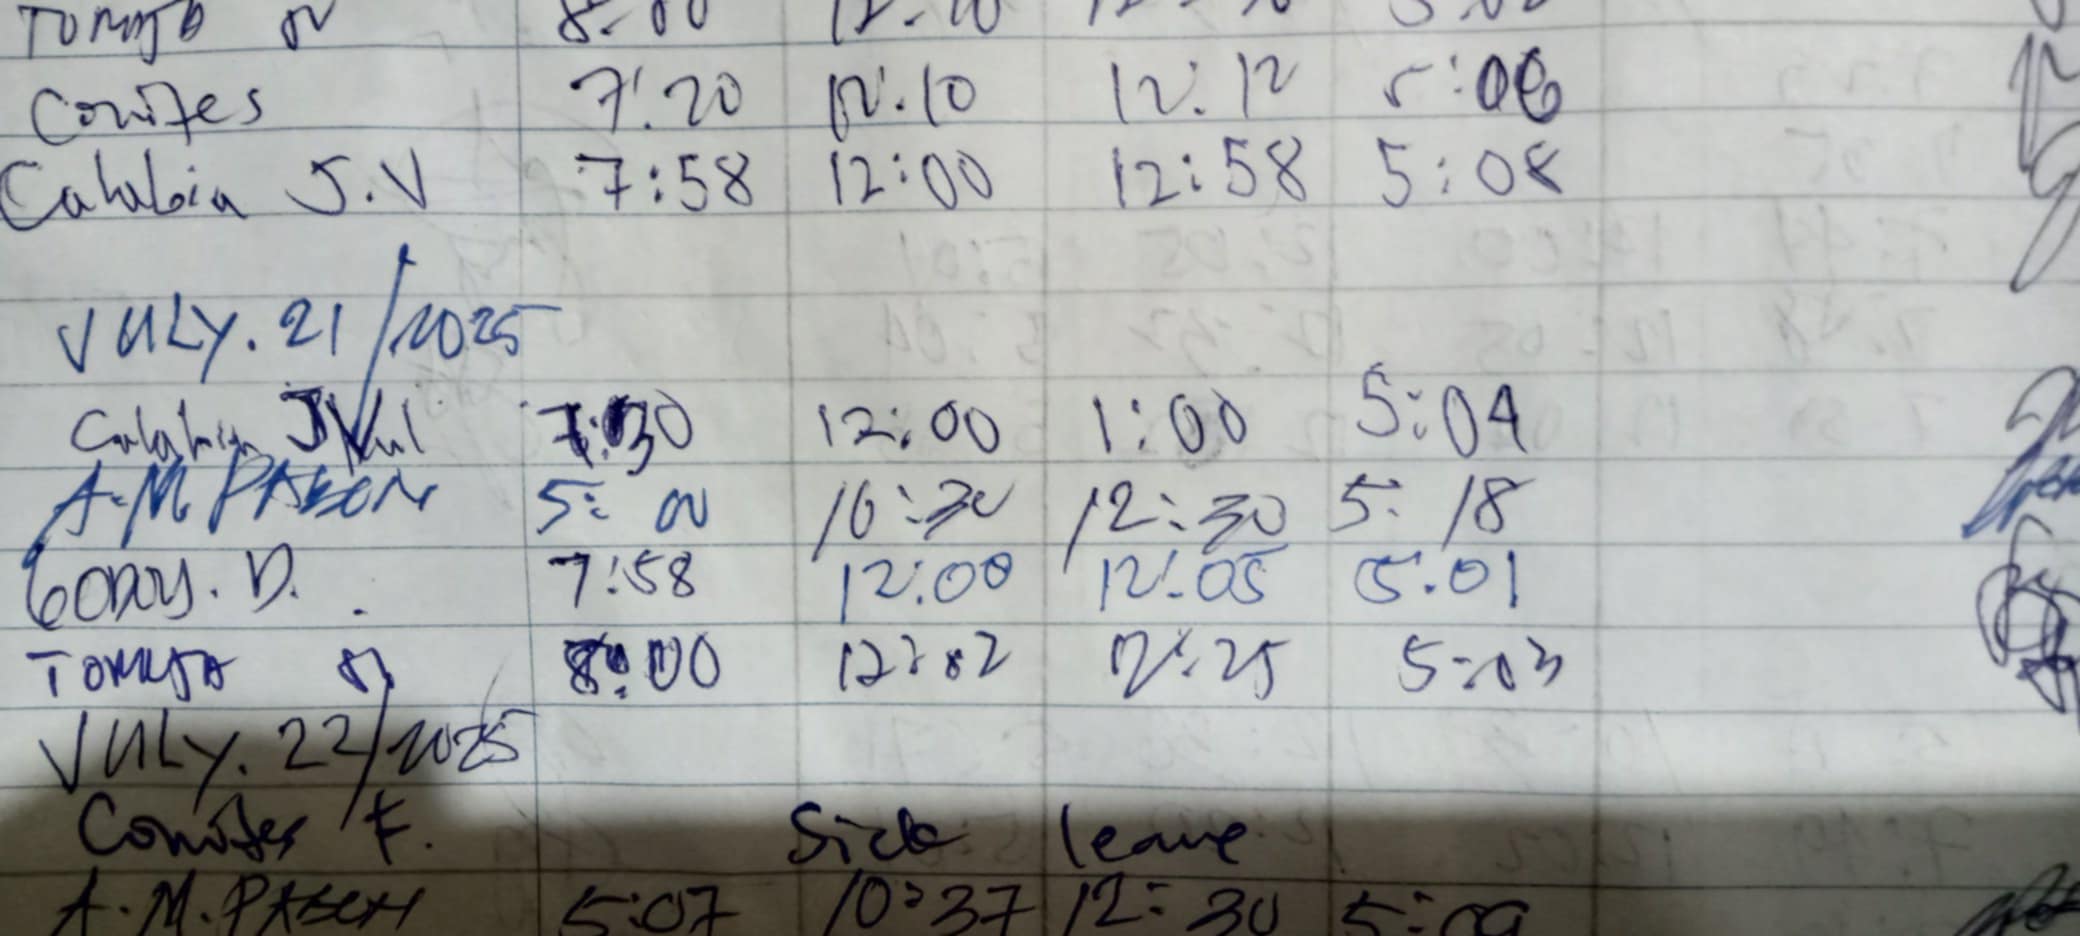 8:00 12:10
Conites 7:20 12:10 12:12 5:06
Calabia J.V 7:58 12:00 12:58 5:08
JULY. 21/2025
Calabia JV 7:30 12:00 1:00 5:04
A.M. PABON 5:00 10:30 12:30 5:18
GODOY. D. 7:58 12:00 12:05 5:01
8:00 12:02 12:25 5:03
JULY. 22/2025
Conites F. Sick leave
A.M. PABON 5:07 10:37 12:30 5:09